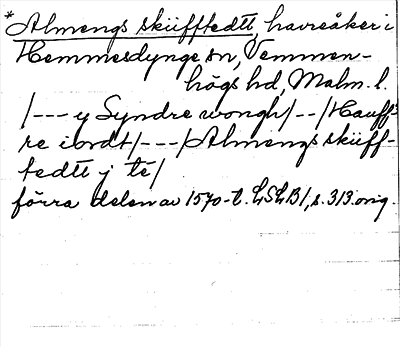 * Almengs skiifftedtt, havreåker i
Hemmesdynge sn, Vemmen-
högs hd, Malm. l.
/--- y Syndre wongh/--/Hauff-
re iordt/---/Almengs skiiff-
tedtt j te/
förra delen av 1570-t. LSLB1, s. 313 orig.